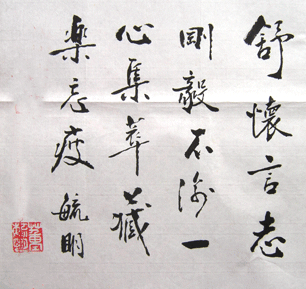 舒懷言志
剛毅不渝一
心集萃藏
樂忘疲 毓明